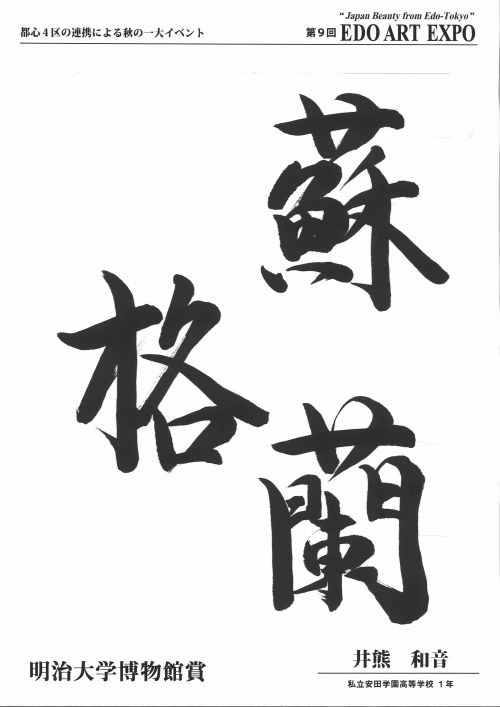 都心4区の連携による秋の一大イベント
“Japan Beauty from Edo-Tokyo”
第9回 EDO ART EXPO
蘇
格
蘭
明治大学博物館賞
井熊 和音
私立安田学園高等学校 1年